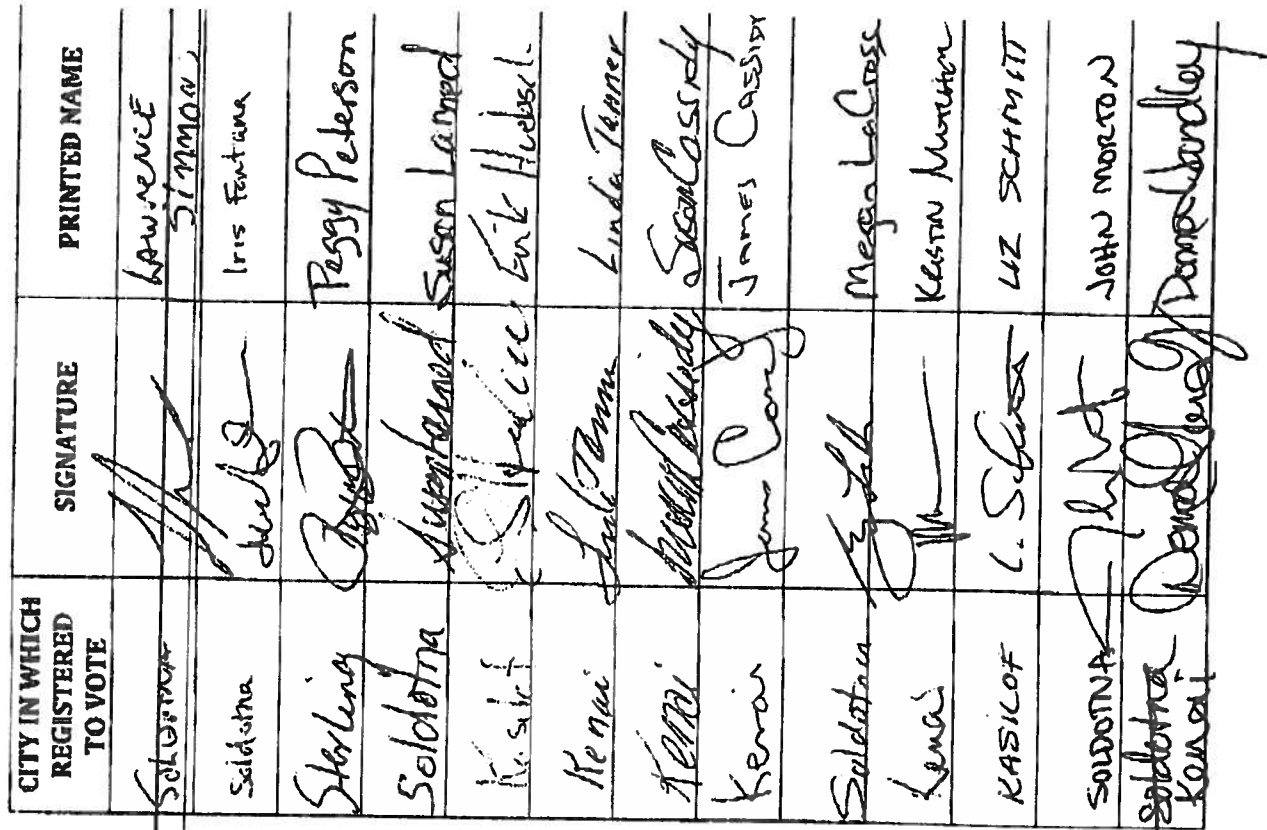 CITY IN WHICH REGISTERED TO VOTE SIGNATURE PRINTED NAME
Soldotna LAWRENCE
Simmon
Soldotna Iris Fontana
Sterling Peggy Peterson
Soldotna Susan Lamod Susan Lamod
Kasilof Erik Huebsch
Kenai Linda Tanner
Kenai Susan Cassidy Susan Cassidy
Kenai James Cassidy
Soldotna Megan LaCrosse
Kenai Kristin
KASILOF L. Schmitt LIZ SCHMITT
SOLDOTNA JOHN MORTON
Soldotna Donna Handley
Kenai